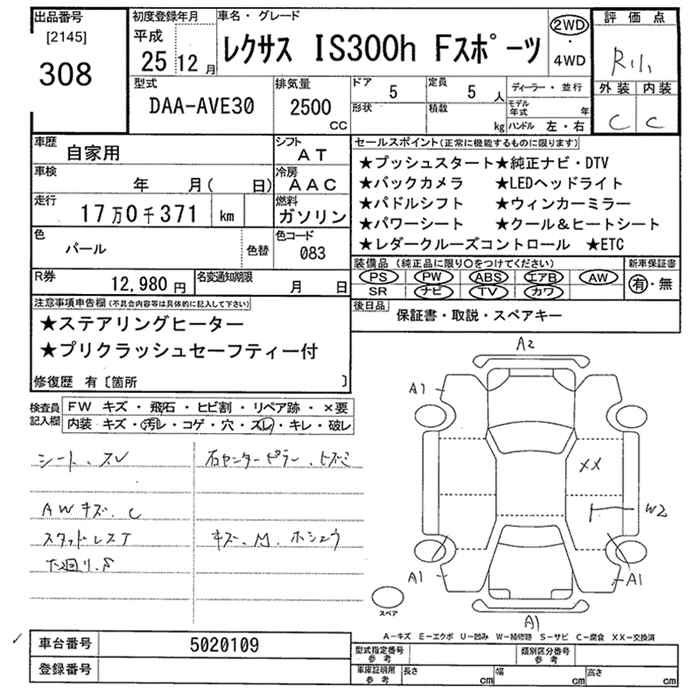 出品番号 初度登録年月 車名・グレード 評価点
[2145] 平成 レクサス IS300h Fスポーツ 2WD・4WD
308 25年12月 R
型式 排気量 ドア 5 定員 5人 ディーラー・並行 外装 内装
DAA-AVE30 2500CC 形状 積数 kg モデル年式 年 C C
ハンドル 左・右
車歴 自家用 シフト AT セールスポイント(正常に機能するものに限ります)
車検 年 月( 日) 冷房 AAC ★プッシュスタート★純正ナビ・DTV
走行 17万0千371 km 燃料 ガソリン ★バックカメラ ★LEDヘッドライト
★パドルシフト ★ウィンカーミラー
★パワーシート ★クール&ヒートシート
色 パール 色替 色コード 083 ★レダークルーズコントロール ★ETC
R券 12,980円 名変通知期限 月 日 装備品(純正品に限り○をつけてください) 新車保証書
PS PW ABS エアB AW 有・無
SR ナビ TV カワ
注意事項申告欄(不具合内容等は具体的に記入して下さい) 後日品 保証書・取説・スペアキー
★ステアリングヒーター
★プリクラッシュセーフティー付
修復歴 有〔箇所 〕
検査員記入欄 FW キズ・飛石・ヒビ割・リペア跡・×要
内装 キズ・汚レ・コゲ・穴・スレ・キレ・破レ
シート、スレ 右センターピラー、ヒズミ
AWキズ、C
スタッドレスT キズ、M、ホシュウ
下廻り、S
A2
A1
XX
W2
A1 A1
スペア A1
A-キズ E-エクボ U-凹み W-補修跡 S-サビ C-腐食 XX-交換済
車台番号 5020109 型式指定番号 参考 類別区分番号 参考
登録番号 車庫証明用 参考 長さ cm 幅 cm 高さ cm